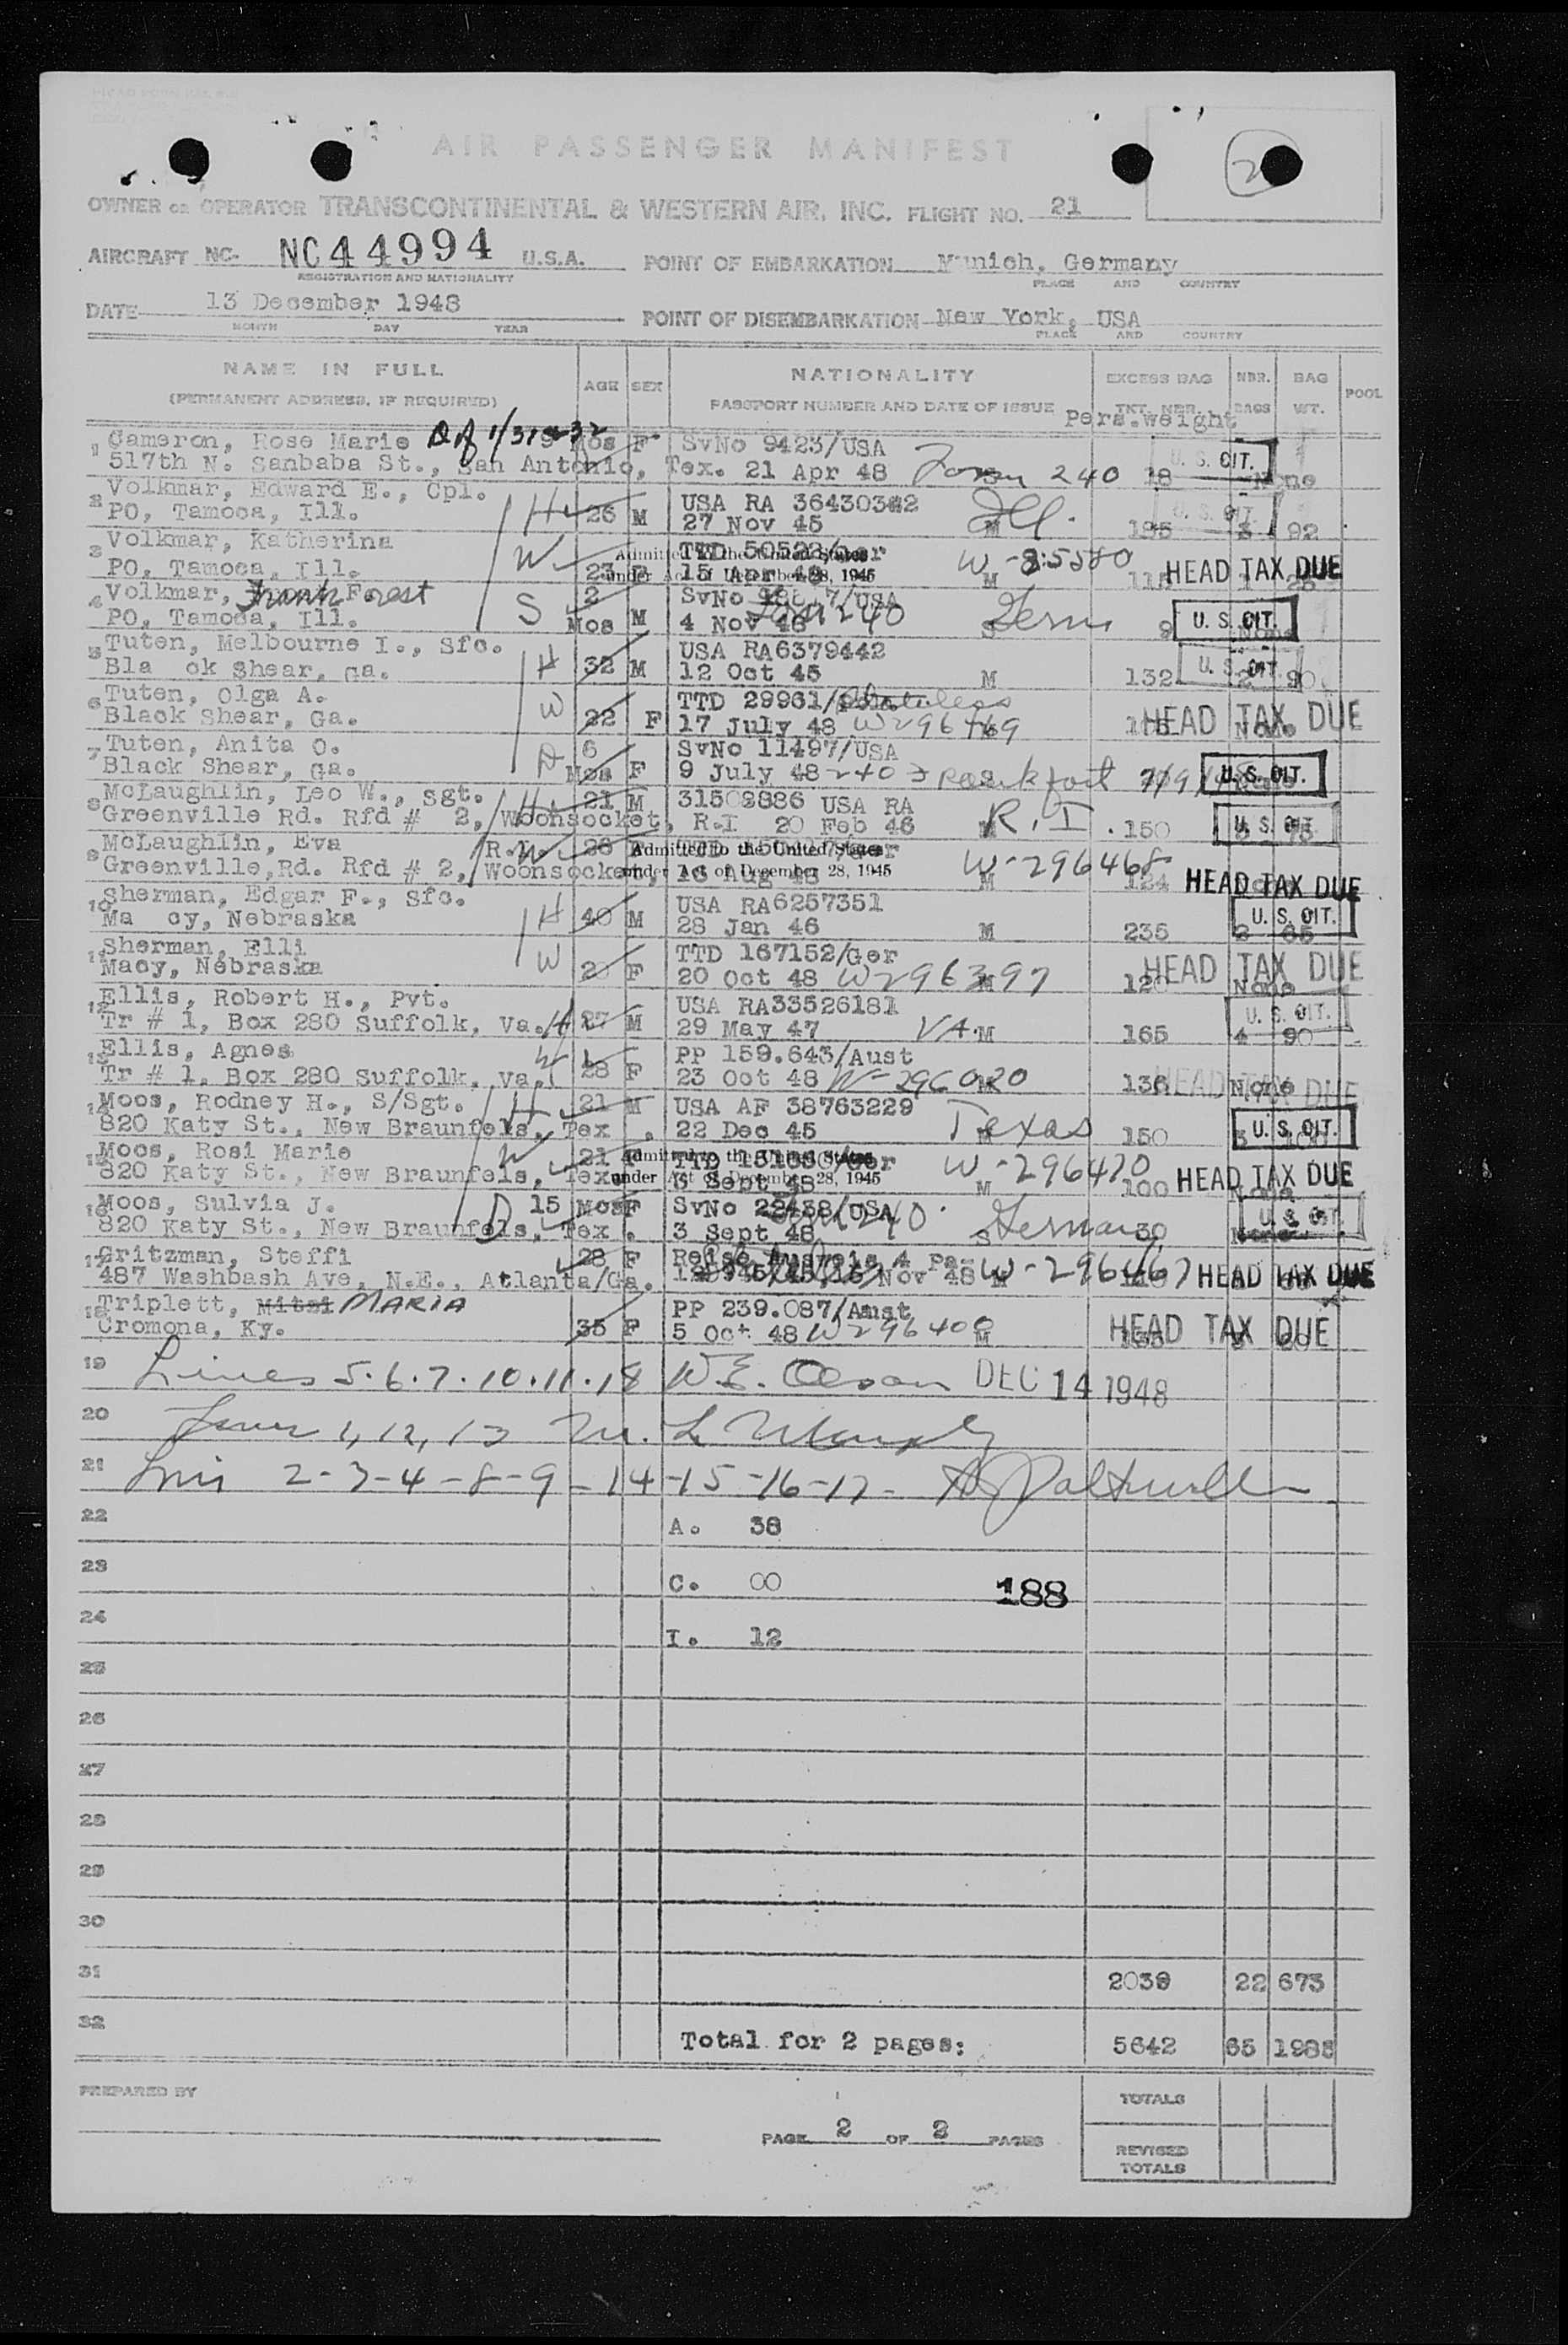 AIR PASSENGER MANIFEST
2
OWNER OR OPERATOR TRANSCONTINENTAL & WESTERN AIR, INC. FLIGHT NO. 21
AIRCRAFT NC- NC44994 U.S.A. POINT OF EMBARKATION Munich, Germany
REGISTRATION AND NATIONALITY PLACE AND COUNTRY
DATE 13 December 1948 POINT OF DISEMBARKATION New York, USA
MONTH DAY YEAR PLACE AND COUNTRY
NAME IN FULL AGE SEX NATIONALITY EXCESS BAG NBR. BAG POOL
(PERMANENT ADDRESS, IF REQUIRED) PASSPORT NUMBER AND DATE OF ISSUE TKT. NBR. BAGS WT.
Pers.weight
1 Cameron, Rose Marie Mos F SvNo 9423/USA
517th N. Sanbaba St., San Antonio, Tex. 21 Apr 48 Form 240 18 U. S. CIT. None
2 Volkmar, Edward E., Cpl. USA RA 36430342
PO, Tamoca, Ill. H 26 M 27 Nov 45 Ill. M 195 U. S. CIT. 3 92
3 Volkmar, Katherina TTD 50522/Ger Admitted to the United States
PO, Tamoca, Ill. W 23 F 15 Apr 48 under Act of December 28, 1945 M HEAD TAX DUE
4 Volkmar, Frank Forest 2 SvNo /USA
PO, Tamoca, Ill. S Mos M 4 Nov 48 240 S Germ 9 U. S. CIT. None
5 Tuten, Melbourne I., Sfc. USA RA6379442
Bla ck Shear, Ga. H 32 M 12 Oct 45 M 132 U. S. CIT. 2 90
6 Tuten, Olga A. TTD 29961/ Stateless
Black Shear, Ga. W 22 F 17 July 48 W296469 HEAD TAX DUE None
7 Tuten, Anita O. 6 SvNo 11497/USA
Black Shear, Ga. D Mos F 9 July 48 240 U. S. CIT.
8 McLaughlin, Leo W., Sgt. H 21 M 31502886 USA RA
Greenville Rd. Rfd # 2, Woonsocket, R.I 20 Feb 46 M R.I. 150 U. S. CIT.
9 McLaughlin, Eva R.I. W F Admitted to the United States
Greenville, Rd. Rfd # 2, Woonsocket, Aug 48 under Act of December 28, 1945 W-296468 M 124 HEAD TAX DUE
10 Sherman, Edgar F., Sfc. USA RA6257351
Ma cy, Nebraska H 40 M 28 Jan 46 M 235 U. S. CIT. 2 65
11 Sherman, Elli TTD 167152/Ger
Macy, Nebraska W F 20 Oct 48 W296397 M HEAD TAX DUE None
12 Ellis, Robert H., Pvt. USA RA33526181
Tr # 1, Box 280 Suffolk, Va. H 27 M 29 May 47 VA M 165 U. S. CIT. 4 90
13 Ellis, Agnes PP 159.643/Aust
Tr # 1, Box 280 Suffolk, Va. W 28 F 23 Oct 48 W-296020 M 136 HEAD TAX DUE None
14 Moos, Rodney H., S/Sgt. H 21 M USA AF 38763229
820 Katy St., New Braunfels, Tex. 22 Dec 45 Texas M 150 U. S. CIT.
15 Moos, Rosi Marie W 21 F Admitted to the United States
820 Katy St., New Braunfels, Tex. Sept 48 under Act of December 28, 1945 W-296470 M 100 HEAD TAX DUE None
16 Moos, Sulvia J. D 15 Mos F SvNo 22438/USA
820 Katy St., New Braunfels, Tex. 3 Sept 48 240 S Germany 30 U. S. CIT. None
17 Gritzman, Steffi 28 F Reise Ausweis
487 Washbash Ave, N.E., Atlanta/Ga. Nov 48 W-296467 HEAD TAX DUE
18 Triplett, Mitzi MARIA PP 239.087/Aust
Cromona, Ky. 35 F 5 Oct 48 W296400 M HEAD TAX DUE
19 Lines 5.6.7.10.11.18 DEC 14 1948
20 Lines 1, 12, 13
21 Lines 2-3-4-8-9-14-15-16-17-
22 A. 38
23 C. 00 188
24 I. 12
25
26
27
28
29
30
31 2039 22 673
32 Total for 2 pages: 5642 65 1985
PREPARED BY TOTALS
PAGE 2 OF 2 PAGES
REVISED TOTALS